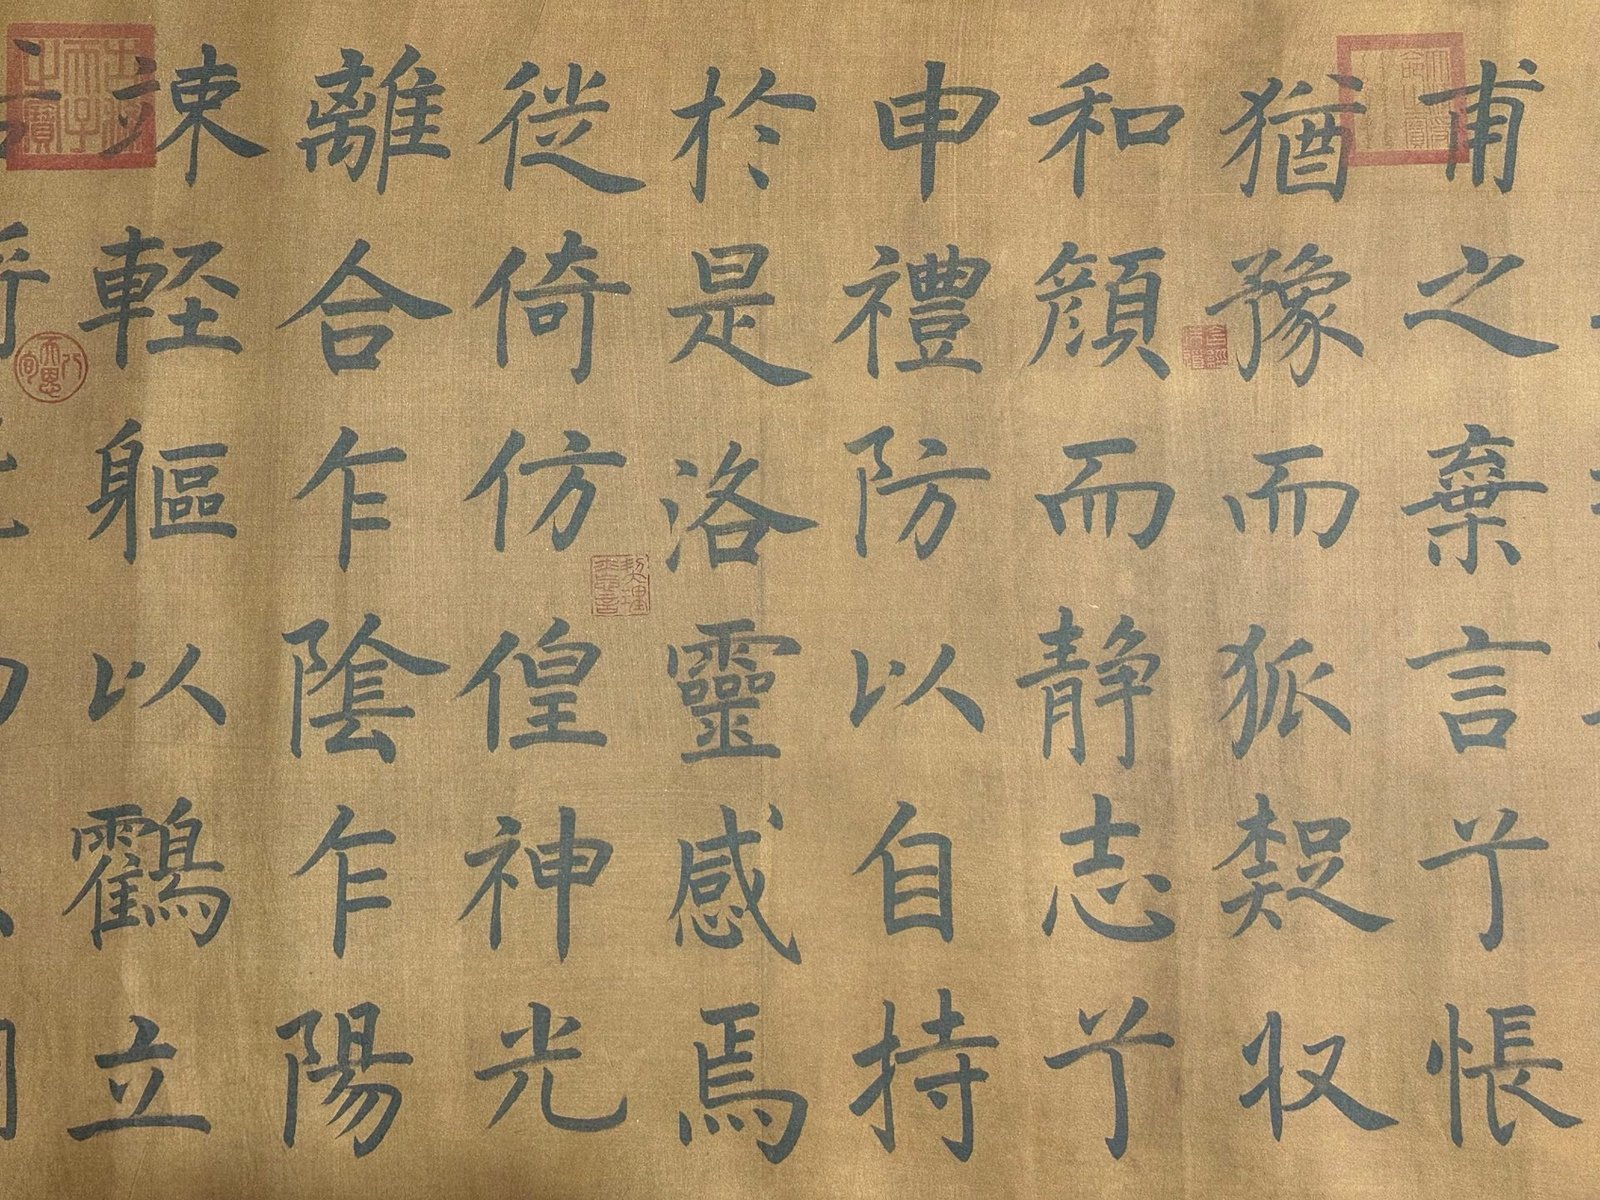 甫之棄言兮悵
猶豫而狐疑収
和顔而静志兮
申禮防以自持
於是洛靈感焉
徙倚仿偟神光
離合乍隂乍陽
竦軽軀以鸖立